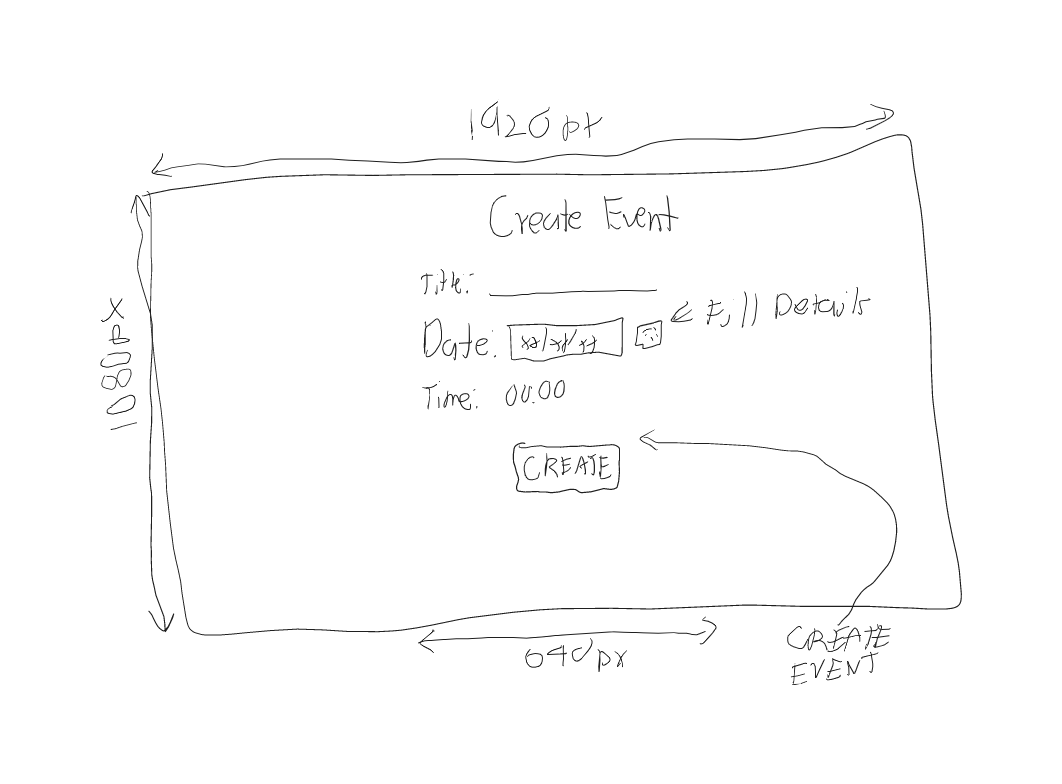 1920px
1080px
Create Event
Title:
Date: xx/xx/xx
Fill Details
Time: 00.00
CREATE
640px
CREATE
EVENT